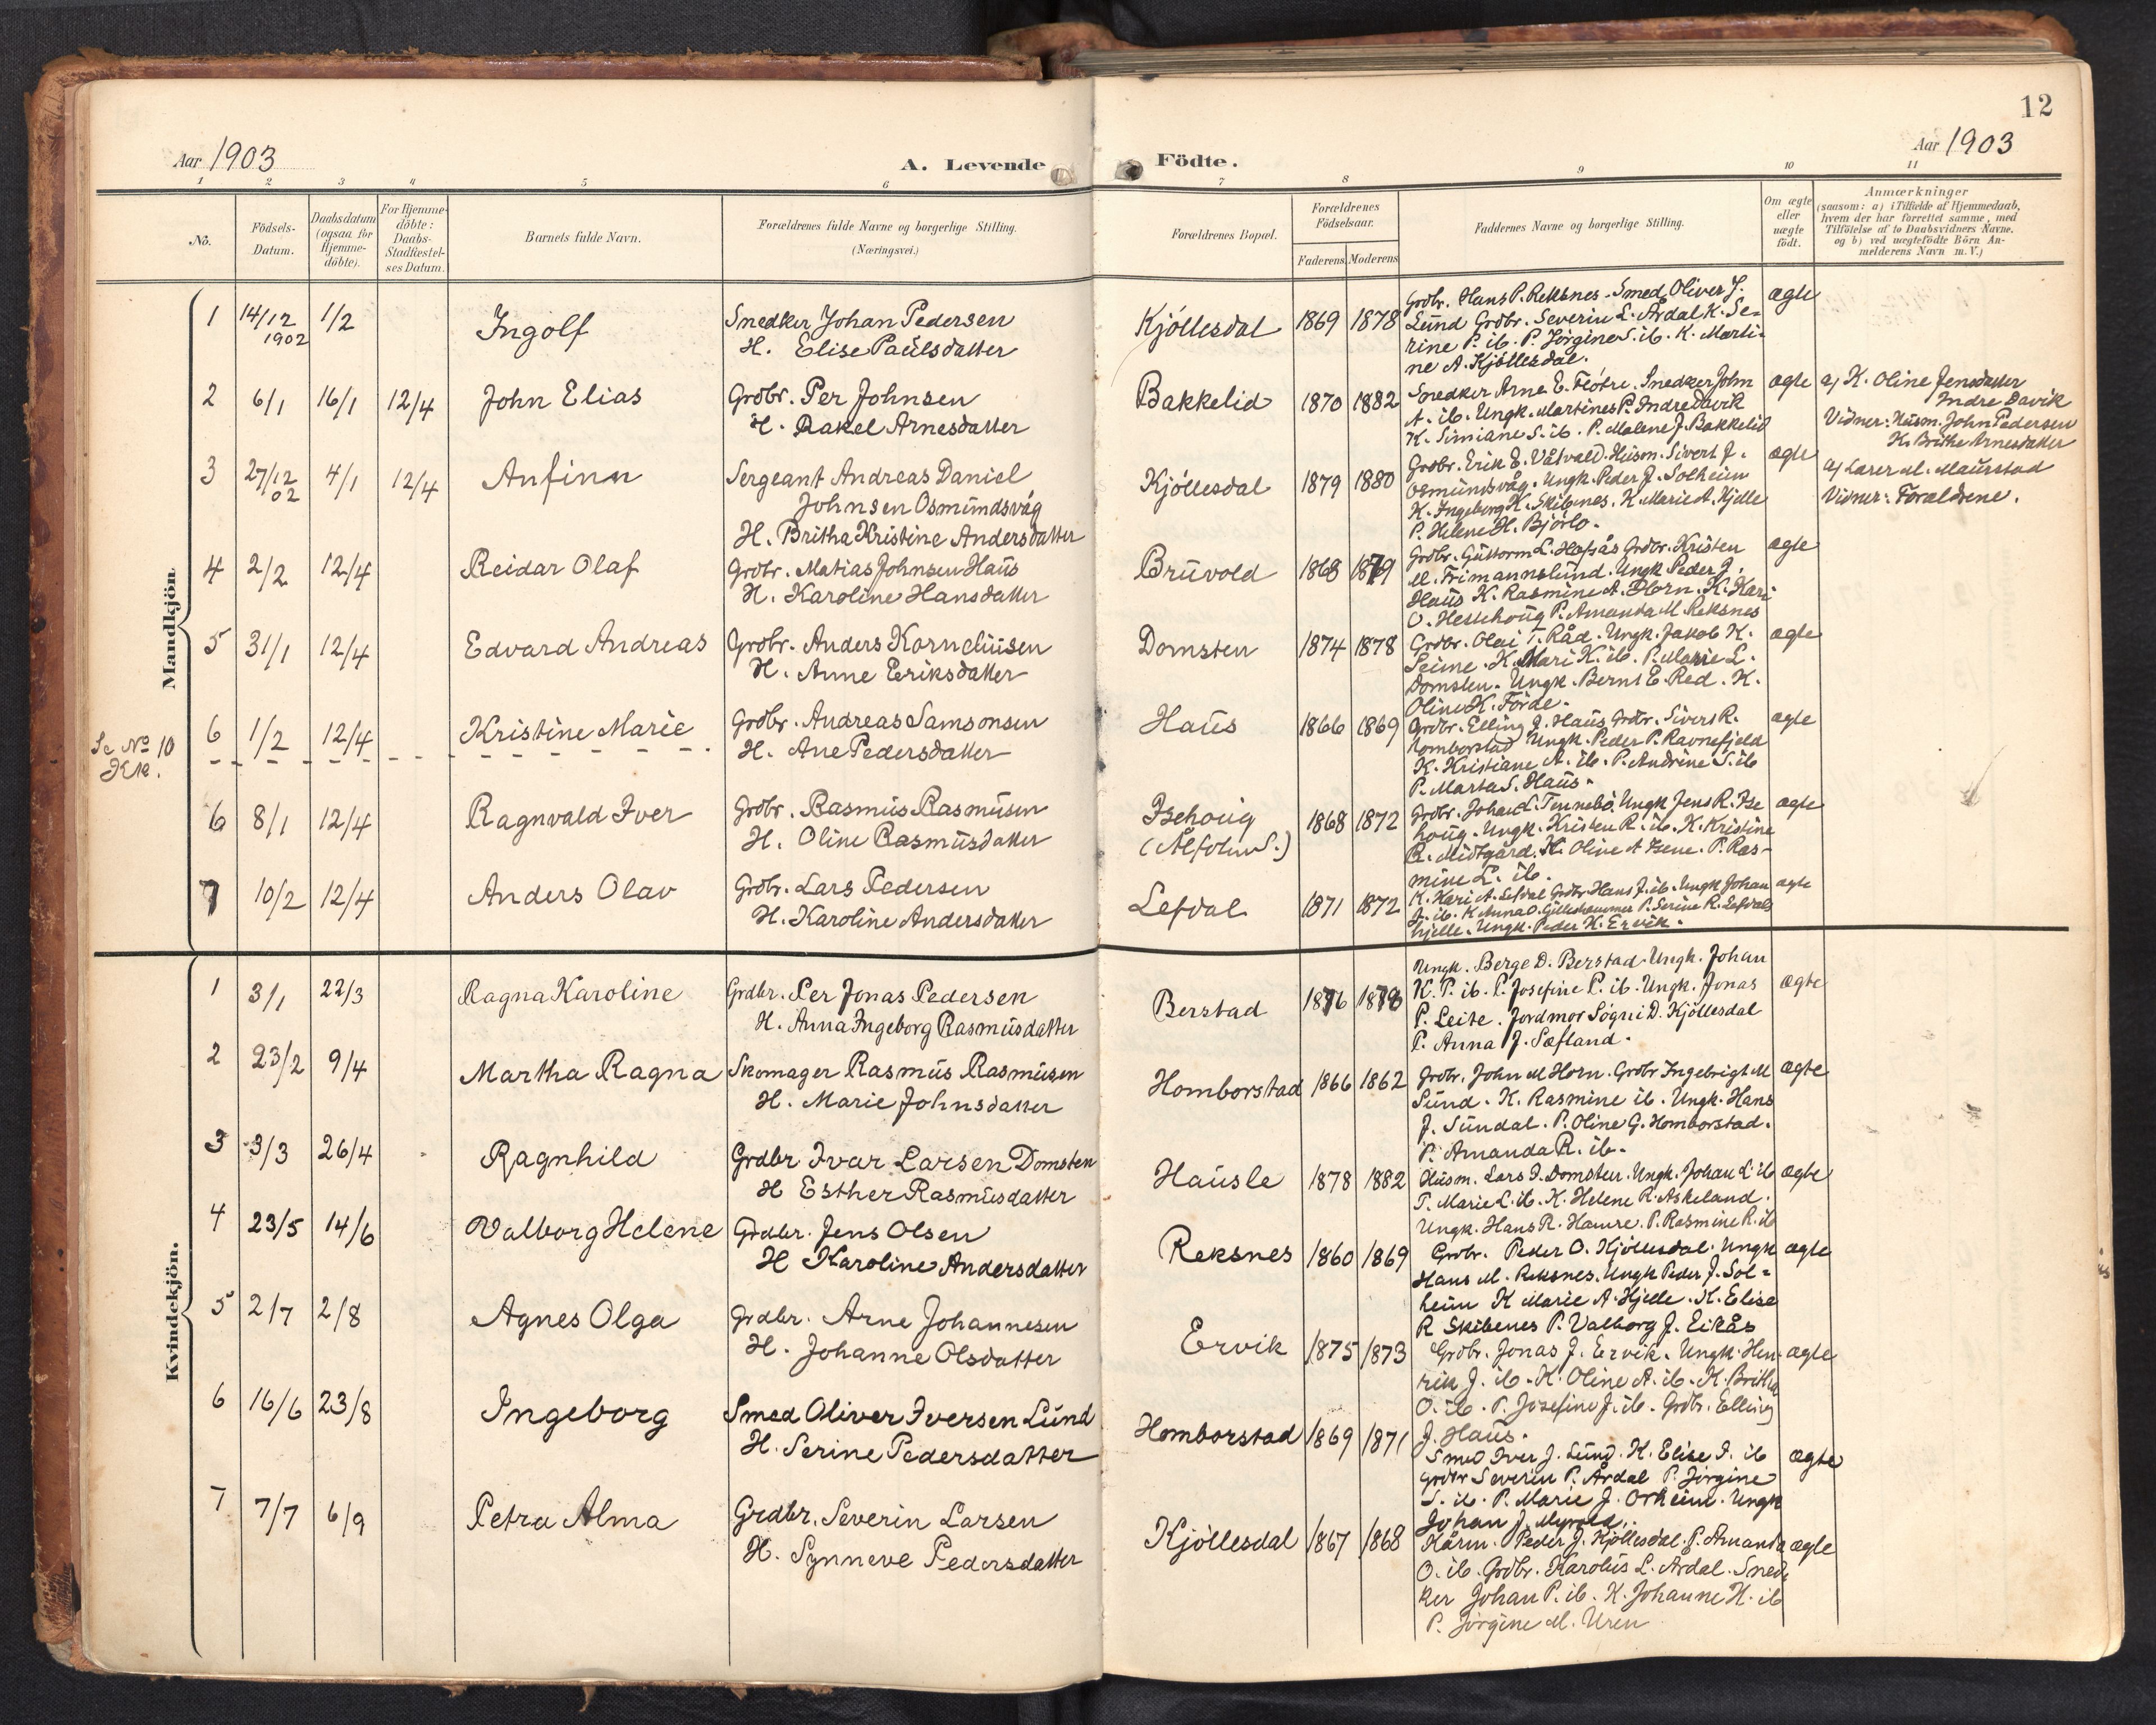 12
Aar 1903
A. Levende Födte.
Aar 1903
1 2 3 4 5 6 7 8 9 10 11
No.
Födsels-
Datum.
Daabsdatum
(ogsaa for
Hjemme-
döbte).
For Hjemme-
döbte:
Daabs-
Stadfæstel-
ses Datum.
Barnets fulde Navn.
Forældrenes fulde Navne og borgerlige Stilling.
(Næringsvei.)
Forældrenes Bopæl.
Forældrenes
Födselsaar.
Faderens. Moderens.
Faddernes Navne og borgerlige Stilling.
Om ægte
eller
uægte
födt.
Anmærkninger
(saasom: a) i Tilfælde af Hjemmedaab,
hvem der har forrettet samme, med
Tilföielse af to Daabsvidners Navne,
og b) ved uægtefödte Börn An-
melderens Navn m. V.)
Mandkjön
1 14/12 1902 1/2 Ingolf
Snedker Johan Pedersen
H. Elise Paulsdatter
Kjöllesdal 1869 1878
Grdbr. Hans P. Reksnes. Smed Oliver J.
Lund Grdbr. Severin L. Årdal K. Se-
rine P. ib. P. Jörgine S. ib. K. Marti-
ne A. Kjöllesdal.
ægte
2 6/1 16/1 12/4 John Elias
Grdbr. Per Johnsen
H. Rakel Arnesdatter
Bakkelid 1870 1882
Snedker Arne E. Flötre. Snedker John
A. ib. Ungk. Martines P. Indre Davik
K. Simiane S. ib. P. Malene J. Bakkelid
ægte
a) K. Oline Jensdatter
Indre Davik
Vidner: Husm. John Pedersen
K. Brithe Arnesdatter
3 27/12 02 4/1 12/4 Anfinn
Sergeant Andreas Daniel
Johnsen Osmundsvåg
H. Britha Kristine Andersdatter
Kjöllesdal 1879 1880
Grdbr. Erik E. Våtvald. Husm. Sivert J.
Osmundsvåg. Ungk. Peder J. Solheim
K. Ingeborg K. Skibenes. K. Marie A. Hjelle
P. Helene H. Bjórlo.
ægte
a) Lærer M. Maurstad
Vidner: Forældrene.
4 2/2 12/4 Reidar Olaf
Grdbr. Matias Johnsen Haus
H. Karoline Hansdatter
Bruvold 1868 1879
Grdbr. Guttorm L. Hafsås Grdbr. Kristen
M. Frimannslund. Ungk. Peder J.
Haus K. Rasmine A. Horn. K. Kari
O. Hessehoug P. Amanda M. Reksnes
ægte
5 31/1 12/4 Edvard Andreas
Grdbr. Anders Korneliusen
H. Anne Eriksdatter
Domsten 1874 1878
Grdbr. Olai T. Råd. Ungk. Jakob K.
Seime. K. Mari K. ib. P. Marie L.
Domsten. Ungk. Bernt E. Red. K.
Oline K. Förde.
ægte
Se No 10
Kk.
6 1/2 12/4 Kristine Marie
Grdbr. Andreas Samsonsen
H. Ane Pedersdatter
Haus 1866 1869
Grdbr. Elling J. Haus, Grdbr. Sivert R.
Homborstad Ungk. Peder P. Ravnefjeld
K. Kristiane A. ib. P. Andrine S. ib
P. Marta S. Haus.
ægte
6 8/1 12/4 Ragnvald Iver
Grdbr. Rasmus Rasmusen
H. Oline Rasmusdatter
Isehoug
(Ålfoten S.)
1868 1872
Grdbr. Johan L. Tennebö. Ungk Jens R. Ise
houg. Ungk. Kristen R. ib. K. Kristine
R. Midtgård. K. Oline A Isene. P. Ras-
mine L. ib.
ægte
7 10/2 12/4 Anders Olav
Grdbr. Lars Pedersen
H. Karoline Andersdatter
Lefdal 1871 1872
K. Kari A. Lefdal Grdbr. Hans J. ib. Ungk Johan
J. ib. K Anna O. Gilleshammer P. Serine R. Lefdals
hjelle. Ungk. Peder K. Ervik.
ægte
Kvindekjön.
1 3/1 22/3 Ragna Karoline
Grdbr. Per Jonas Pedersen
H. Anna Ingeborg Rasmusdatter
Berstad 1876 1878
Ungk. Berge D. Berstad. Ungk. Johan
K. P. ib. P. Josefine P. ib. Ungk. Jonas
P. Leite. Jordmor Sögni D. Kjöllesdal
P. Anna J. Sæfland.
ægte
2 23/2 9/4 Martha Ragna
Skomager Rasmus Rasmusen
H. Marie Johnsdatter
Homborstad 1866 1862
Grdbr. John M Horn. Grdbr Ingebrigt M
Sund. K. Rasmine ib. Ungk. Hans
J. Sundal. P. Oline G. Homborstad.
P. Amanda R. ib.
ægte
3 3/3 26/4 Ragnhild
Grdbr Ivar Larsen Domsten
H Esther Rasmusdatter
Hausle 1878 1882
Husm. Lars I. Domsten. Ungk. Johan L ib
P. Marie L. ib. K. Helene R. Askeland.
Ungk. Hans R. Hamre. P. Rasmine R. ib
ægte
4 23/5 14/6 Valborg Helene
Grdbr. Jens Olsen
H Karoline Andersdatter
Reksnes 1860 1869
Grdbr. Peder O. Kjöllesdal. Ungk
Hans M. Reksnes. Ungk Peder J. Sol-
heim K Marie A. Hjelle. K. Elise
R Skibenes P. Valborg J. Eikås
ægte
5 2/7 2/8 Agnes Olga
Grdbr. Arne Johannesen
H. Johanne Olsdatter
Ervik 1875 1873
Grdbr. Jonas J. Ervik. Ungk. Hen-
rik J. ib. K. Oline A. ib. K. Britha
O. ib. P. Josefine J. ib. Grdbr. Elling
J. Haus.
ægte
6 16/6 23/8 Ingeborg
Smed Oliver Iversen Lund
H. Serine Pedersdatter
Homborstad 1869 1871
Smed Iver J. Lund. K. Elise I. ib
Grdbr Severin P. Årdal P. Jörgine
S. ib. P. Marie J. Orheim. Ungk
Johan J. Myrold.
ægte
7 7/7 6/9 Petra Alma
Grdbr. Severin Larsen
H. Synneve Pedersdatter
Kjöllesdal 1867 1868
Kårm. Peder J. Kjöllesdal. P. Amanda
O. ib. Grdbr. Karolus L. Årdal. Sned-
ker Johan P. ib. K. Johanne H. ib
P. Jörgine M. Uren
ægte